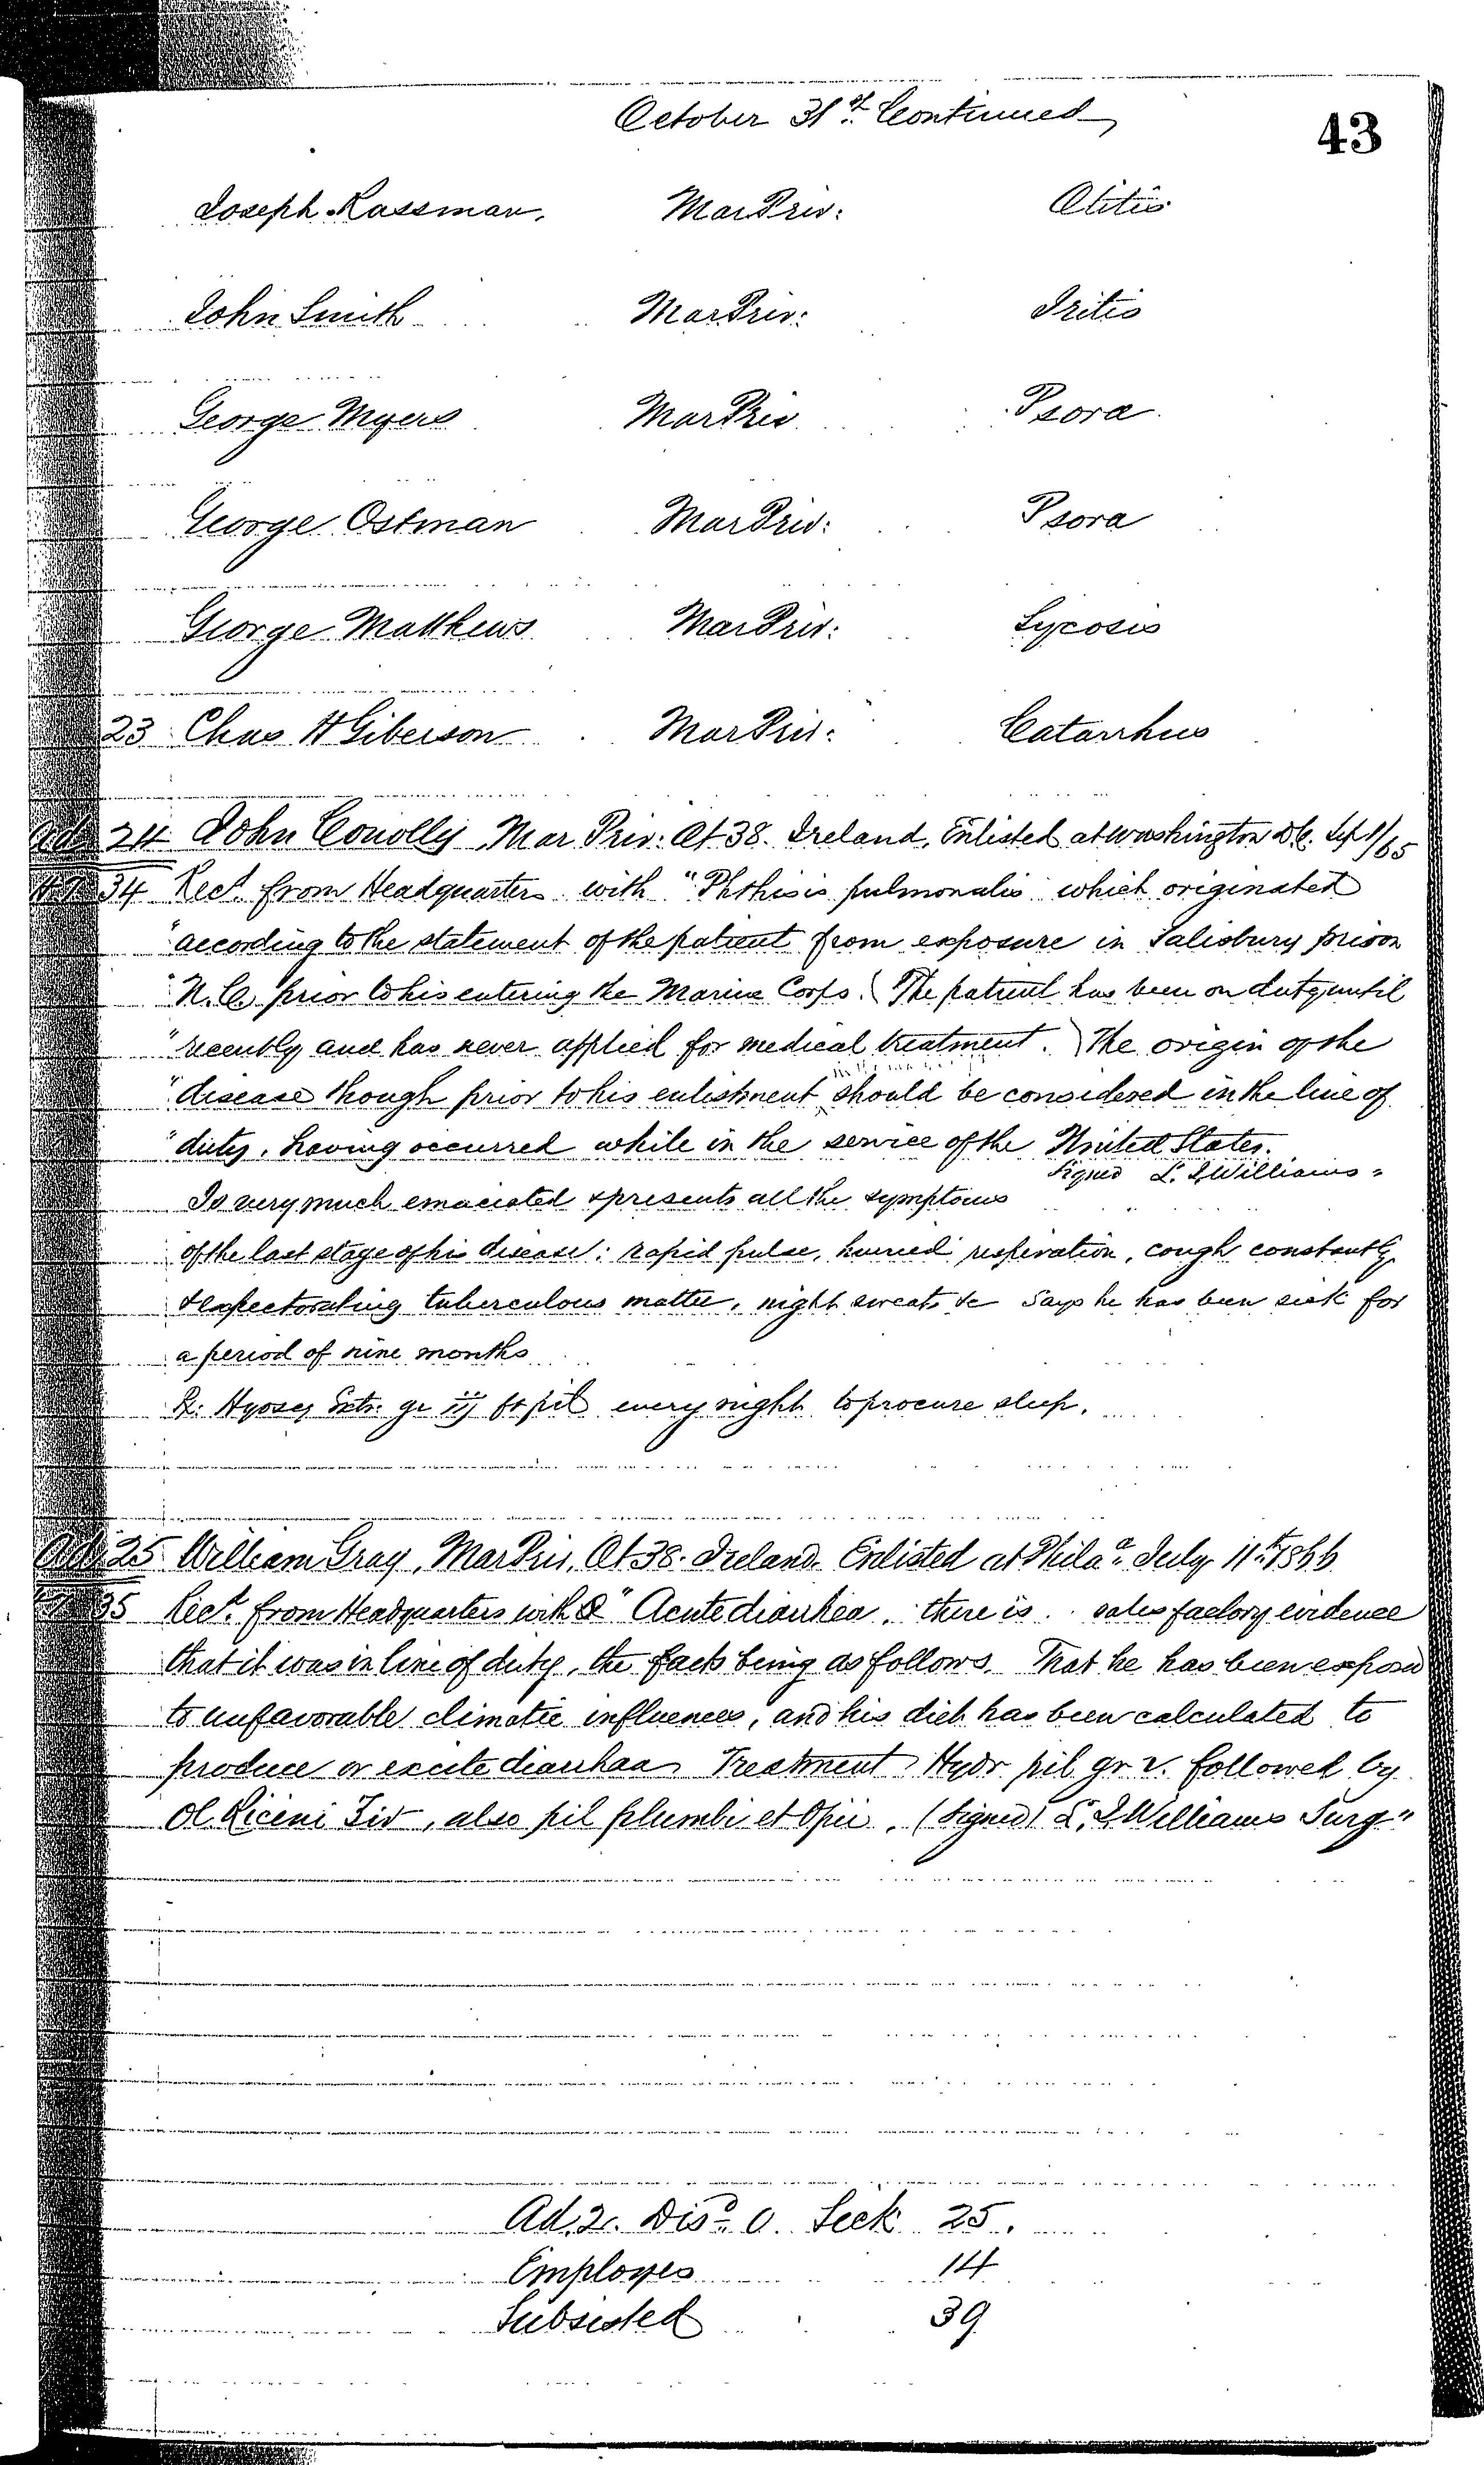 October 31st Continued
43
Joseph Rassman. Mar Priv: Otitis
John Smith Mar Priv: Iritis
George Myers Mar Priv Psora
George Ostman Mar Priv: Psora
George Matthews Mar Priv: Sycosis
23 Chas H Giberson Mar Priv: Catarrhus
Ad 24 John Conolly Mar Priv: At 38. Ireland, Enlisted at Washington D.C. Sep 1/65
H.T. 34 Rect. from Headquarters with "Phthisis pulmonalis which originated
"according to the statement of the patient from exposure in Salisbury prison
"N.C. prior to his entering the Marine Corps. (The patient has been on duty until
"recently and has never applied for medical treatment.) The origin of the
"disease though prior to his enlistment should be considered in the line of
"duty, having occurred while in the service of the United States.
Signed L. J. Williams"
Is very much emaciated & presents all the symptoms
of the last stage of his disease: rapid pulse, hurried respiration, cough constantly
& expectorating tuberculous matter, night sweats &c Says he has been sick for
a period of nine months
R: Hyoscy Extr: gr iij ft pil every night to procure sleep.
Ad. 25 William Gray, Mar Priv. At 38. Ireland. Enlisted at Phila. July 11th 1866
35 Rect. from Headquarters with "Acute diarrhea, there is satisfactory evidence
that it was in line of duty, the facts being as follows. That he has been exposed
to unfavorable climatic influences, and his diet has been calculated to
produce or excite diarrhaa Treatment Hydr pil gr v. followed by
Ol Ricini ℥iv, also pil plumbi et Opii. (Signed) L. J. Williams Surg"
Ad. 2. Disd. 0. Sick 25.
Employes 14
Subsisted 39